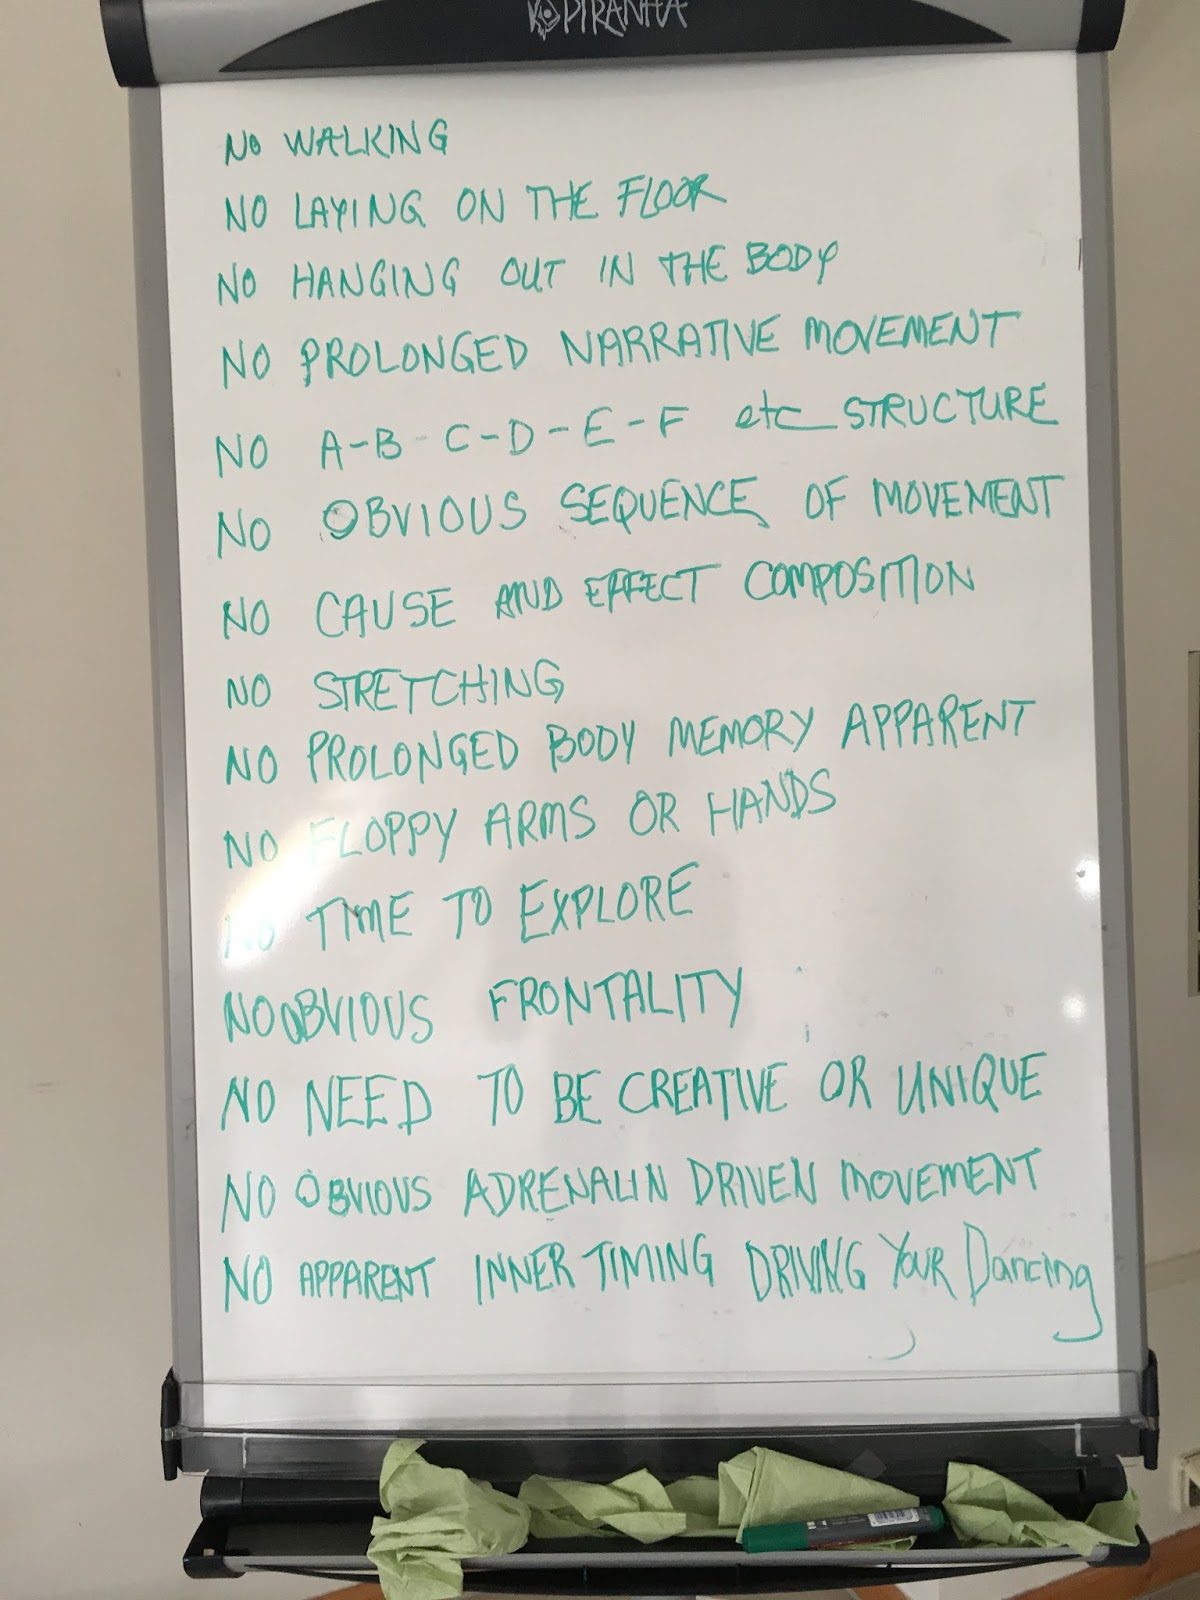 PIRANHA
NO WALKING
NO LAYING ON THE FLOOR
NO HANGING OUT IN THE BODY
NO PROLONGED NARRATIVE MOVEMENT
NO A-B-C-D-E-F etc STRUCTURE
NO OBVIOUS SEQUENCE OF MOVEMENT
NO CAUSE AND EFFECT COMPOSITION
NO STRETCHING
NO PROLONGED BODY MEMORY APPARENT
NO FLOPPY ARMS OR HANDS
NO TIME TO EXPLORE
NO OBVIOUS FRONTALITY
NO NEED TO BE CREATIVE OR UNIQUE
NO OBVIOUS ADRENALIN DRIVEN MOVEMENT
NO APPARENT INNER TIMING DRIVING YOUR Dancing